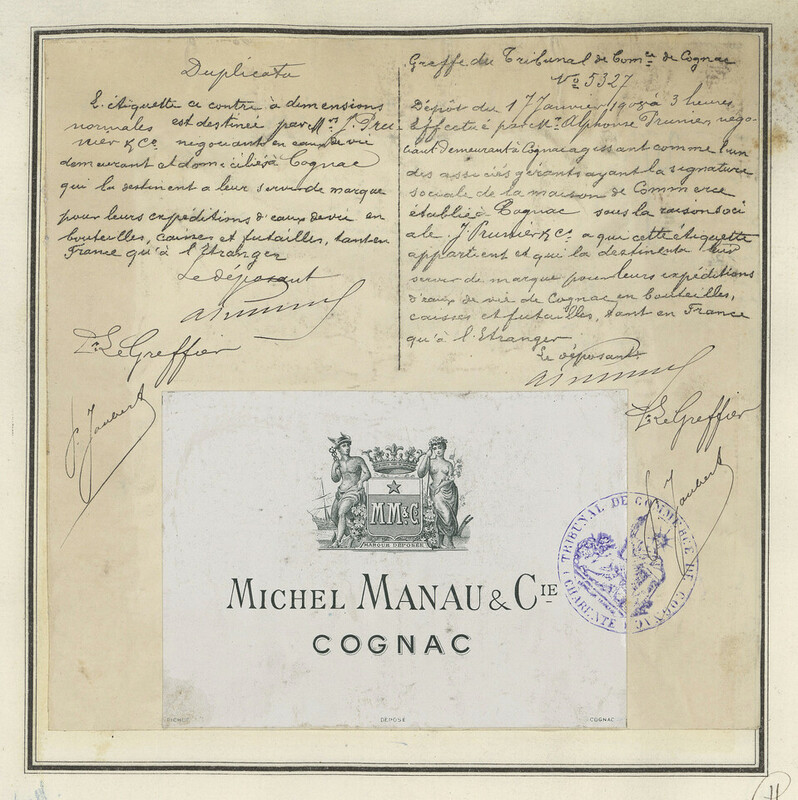 Duplicata
L'étiquette ci contre à dimensions
normales est destinée par Mrs J. Pru-
nier & Co négociant en eaux de vie
demeurant et domiciliés à Cognac
qui la destinent a leur servir de marque
pour leurs expéditions d'eaux de vie en
bouteilles, caisses et futailles, tant en
France qu'à l'Etranger
Le déposant
APrunier
Le Greffier
Jaubert
Greffe du Tribunal de Comce de Cognac
No 5327
Dépôt du 17 Janvier à 3 heures
Effectué par Mr Alphonse Prunier négo-
ciant demeurant à Cognac agissant comme l'un
des associés gérants ayant la signature
sociale de la maison de Commerce
établie à Cognac sous la raison soci
ale J. Prunier & Co a qui cette étiquette
appartient et qui la destinent a leur
servir de marque pour leurs expéditions
d'eaux de vie de Cognac en bouteilles,
caisses et futailles, tant en France
qu'à l'Etranger
Le déposant
APrunier
Le Greffier
Jaubert
MM & C
MARQUE DÉPOSÉE
MICHEL MANAU & CIE
COGNAC
DÉPOSÉ
COGNAC
TRIBUNAL DE COMMERCE DE COGNAC
CHARENTE